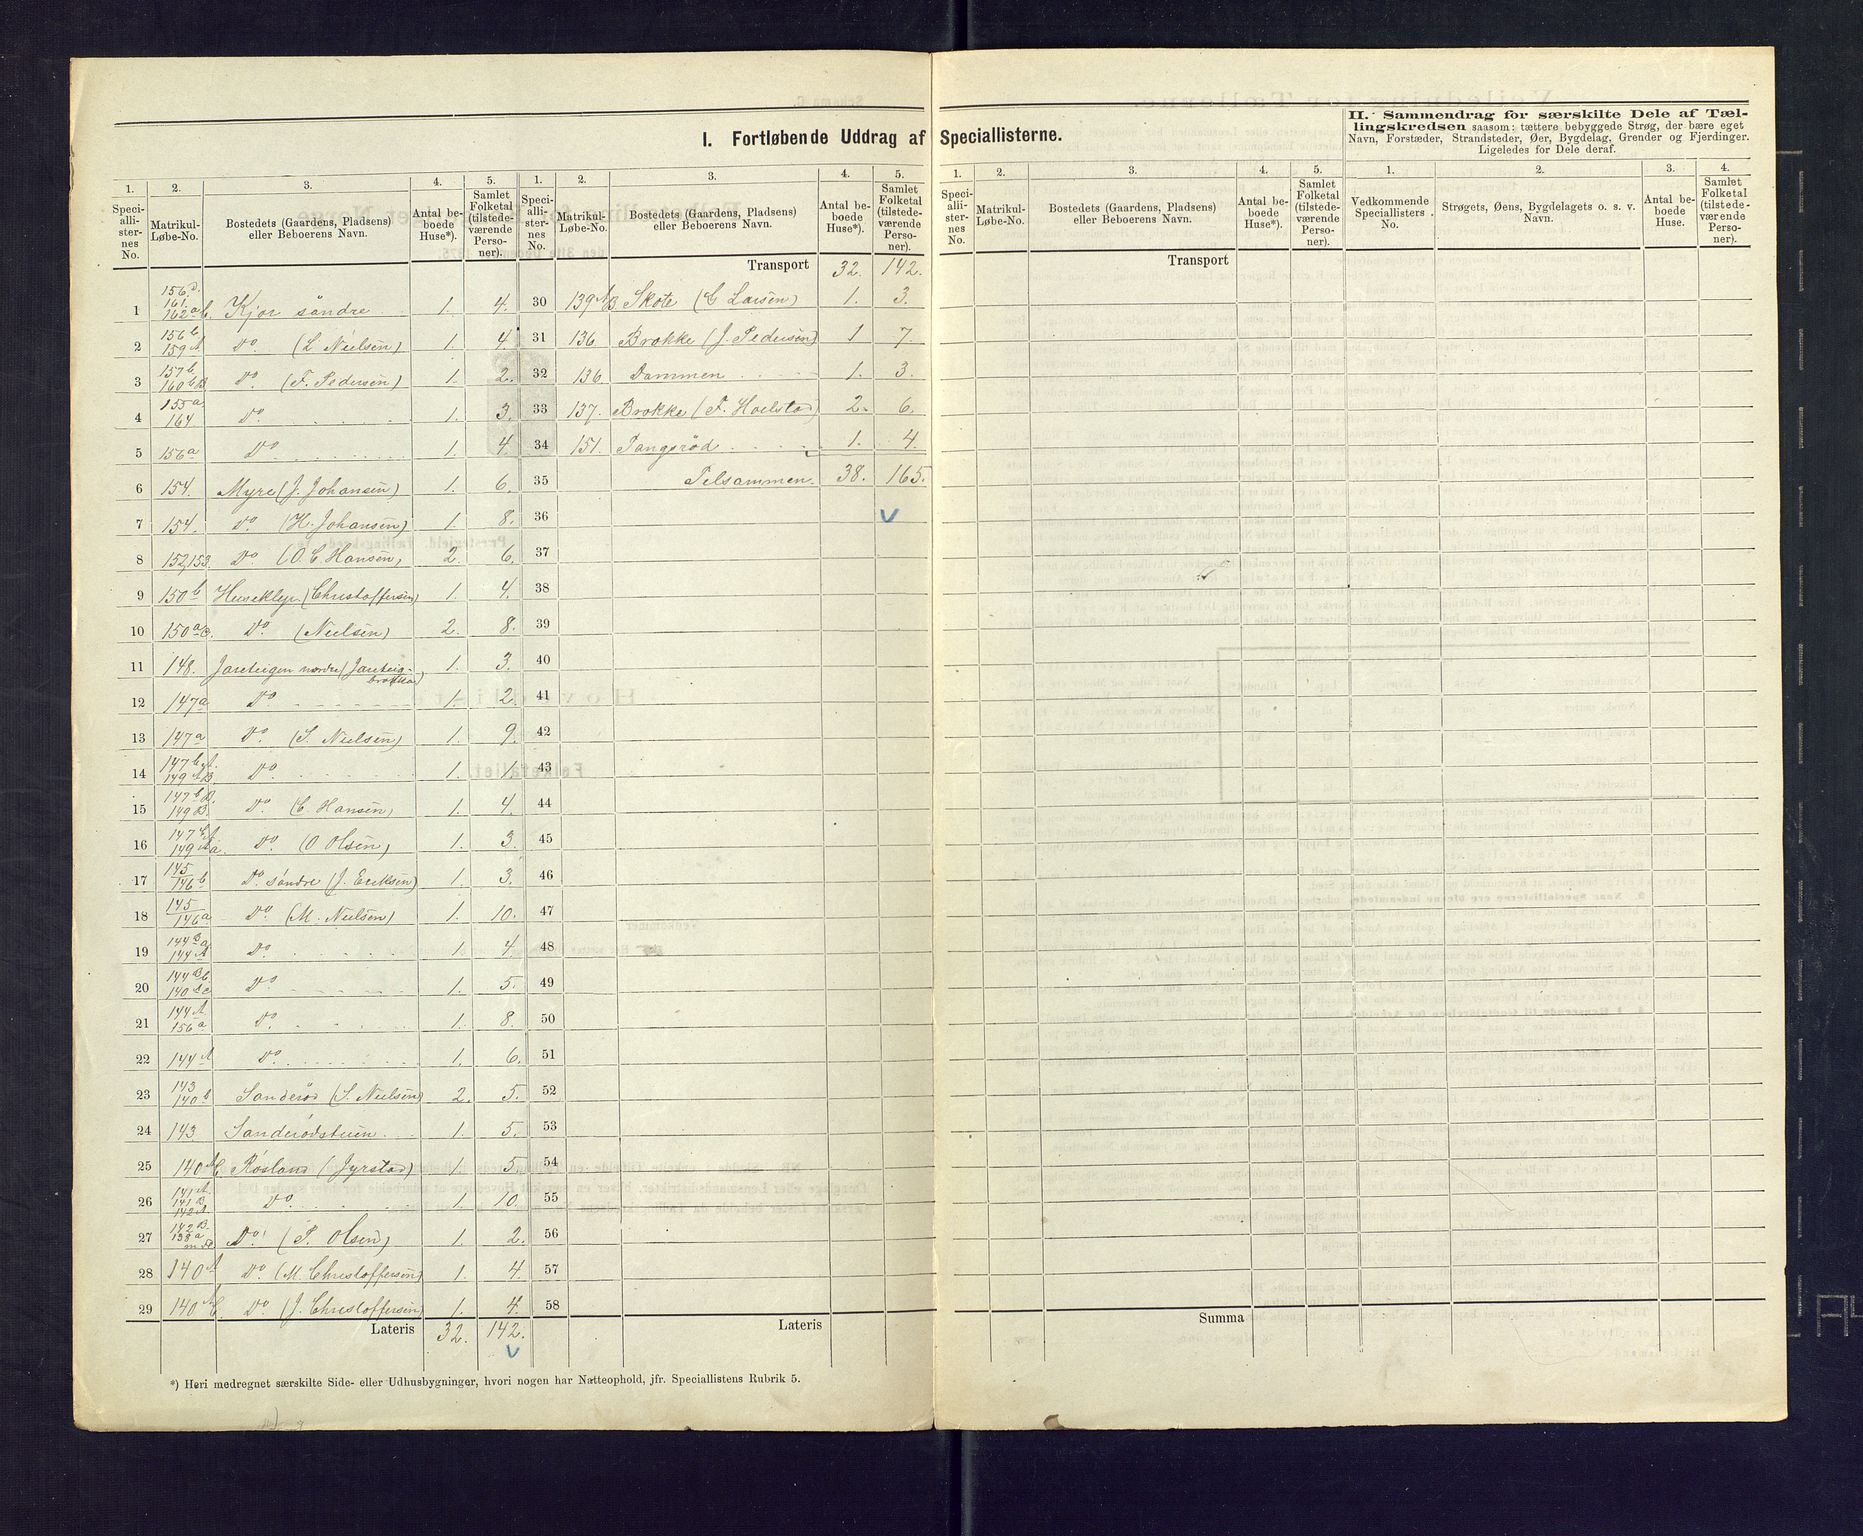 I. Fortløbende Uddrag af Speciallisterne.
II. Sammendrag for særskilte Dele af Tæl-
lingskredsen saasom: tættere bebyggede Strøg, der bære eget
Navn, Forstæder, Strandsteder, Øer, Bygdelag, Grender og Fjerdinger.
Ligeledes for Dele deraf.
1. 2. 3. 4. 5. 1. 2. 3. 4. 5. 1. 2. 3. 4. 5. 1. 2. 3. 4.
Speciallisternes No. Matrikul-Løbe-No. Bostedets (Gaardens, Pladsens) eller Beboerens Navn. Antal beboede Huse*). Samlet Folketal (tilstedeværende Personer).
Speciallisternes No. Matrikul-Løbe-No. Bostedets (Gaardens, Pladsens) eller Beboerens Navn. Antal beboede Huse*). Samlet Folketal (tilstedeværende Personer).
Speciallisternes No. Matrikul-Løbe-No. Bostedets (Gaardens, Pladsens) eller Beboerens Navn. Antal beboede Huse*). Samlet Folketal (tilstedeværende Personer).
Vedkommende Speciallisters No. Strøgets, Øens, Bygdelagets o. s. v. Navn. Antal beboede Huse. Samlet Folketal (tilstedeværende Personer).
1 156d. 161. 162a Kjør søndre 1. 4.
2 156b 159A Do. (L Nielsen) 1. 4.
3 157b 160bB Do. (F. Pedersen) 1. 2.
4 155a 164 Do. 1. 3.
5 156a Do. 1. 4.
6 154. Myre (J. Johansen) 1. 6.
7 154. Do (H. Johansen) 1. 8.
8 152,153. Do (O. C. Hansen) 2. 6.
9 150b Huseklep (Christoffersen) 1. 4.
10 150a/c. Do. (Nielsen) 2. 8.
11 148. Jareteigen nordre (Jareteig-
brokka) 1. 3.
12 147a Do 1. 2.
13 147a Do. (S. Nielsen) 1. 9.
14 147b 149 Do. 1. 1.
15 147bB. 149B. Do (C Hansen) 1. 4.
16 147 149 Do. (O Olsen) 1. 3.
17 145 146b Do. søndre (J. Eriksen) 1. 3.
18 145 146a Do. (M. Nielsen) 1. 10.
19 144Ba 144A Do. 1. 4
20 144Bb 140 Do. 1. 5.
21 144A 156a Do. 1. 8.
22 144A Do. 1. 6.
23 143 140b Sanderød (S. Nielsen) 2. 5.
24 143 Sanderødstuen 1. 5.
25 140 Røsland (Jyrstad) 1. 5
26 141A. 141B. 142A. Do. 1. 10.
27 142B. 138a Do. (P. Olsen) 1. 2.
28 140A Do. (M. Christoffersen) 1. 4
29 140 Do (J. Christoffersen) 1. 4.
Lateris 32. 142.
Transport 32. 142.
30 139AB Skote (C Larsen) 1. 3.
31 136 Brokke (J. Pedersen) 1 7.
32 136 Dammen 1. 3.
33 137. Brokke (F. Hoelstad) 2. 6.
34 151. Tangsrød 1. 4.
35 Tilsammen. 38. 165.
36
37
38
39
40
41
42
43
44
45
46
47
48
49
50
51
52
53
54
55
56
57
58
Lateris
Transport
Summa
*) Heri medregnet særskilte Side- eller Udhusbygninger, hvori nogen har Natteophold, jfr. Speciallistens Rubrik 5.